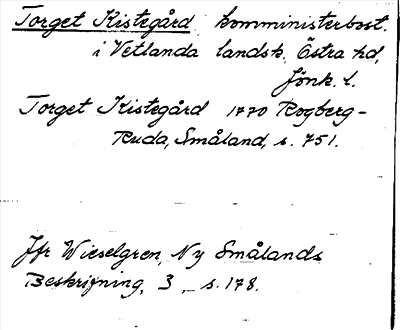 Torget Kistegård, komministerbost.
i Vetlanda landsk. Östra hd,
Jönk. l.
Torget Kistegård 1770 Rogberg-
Ruda, Småland, s. 751.
Jfr Wieselgren, Ny Smålands
Beskrifning, 3, s. 178.